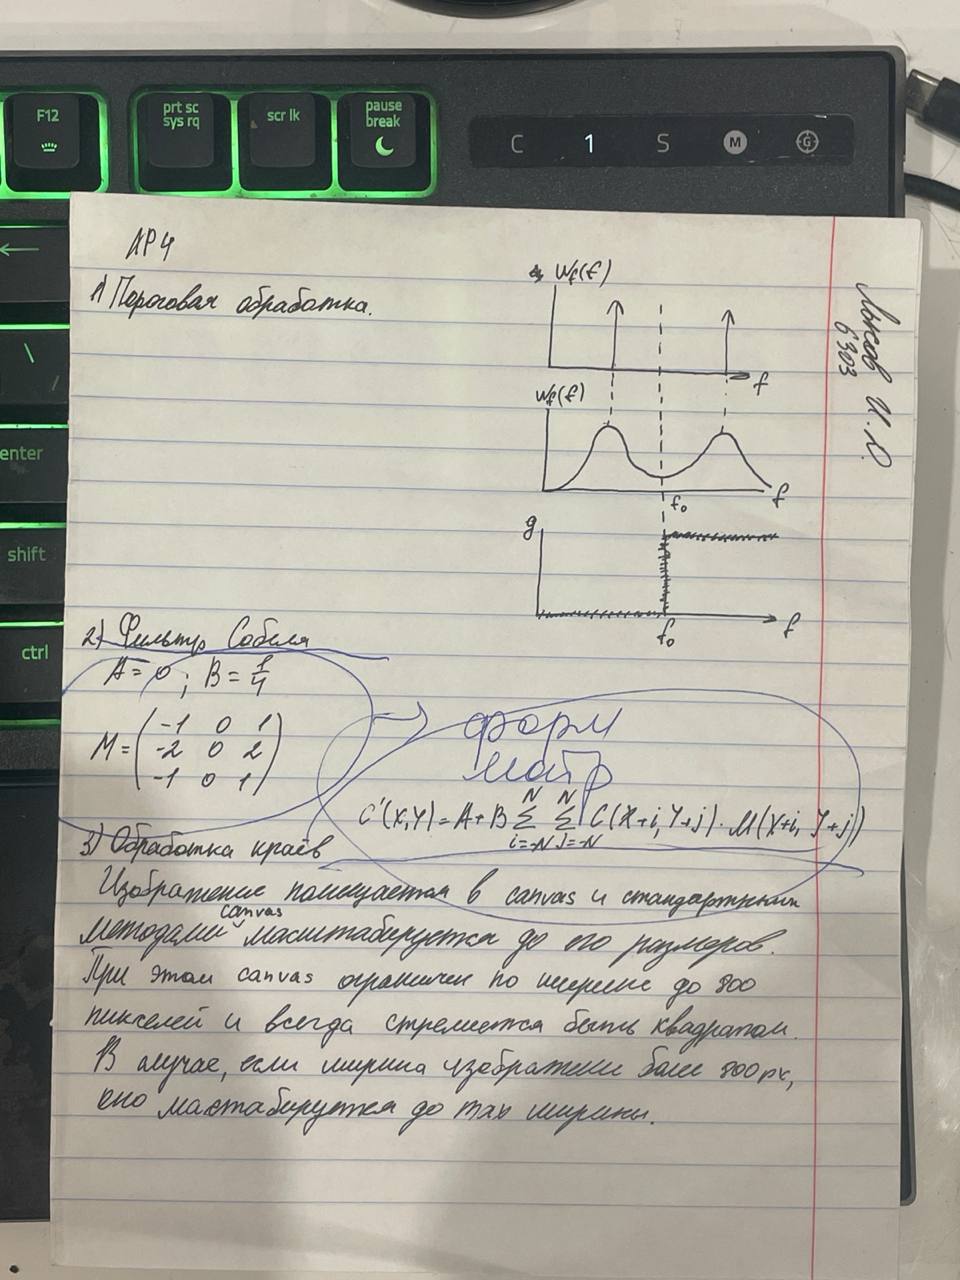 F12
prt sc
sys rq
scr lk
pause
break
C 1 S M G
\
enter
shift
ctrl
ЛР4
1) Пороговая обработка.
Wf(f)
f
Wf(f)
f
f₀
g
f
f₀
И.О.
6303
2) Фильтр Собеля
A = 0 ; B = 1/4
M = (-1 0 1
-2 0 2
-1 0 1)
форм
матр
C'(X,Y) = A + B N∑i=-N N∑j=-N C(X+i, Y+j) · M(X+i, Y+j)
3) Обработка краёв
Изображение помещается в canvas и стандартными
методами canvas масштабируется до его размеров.
При этом canvas ограничен по ширине до 800
пикселей и всегда стремится быть квадратом.
В случае, если ширина изображения более 800px,
оно масштабируется до max ширины.